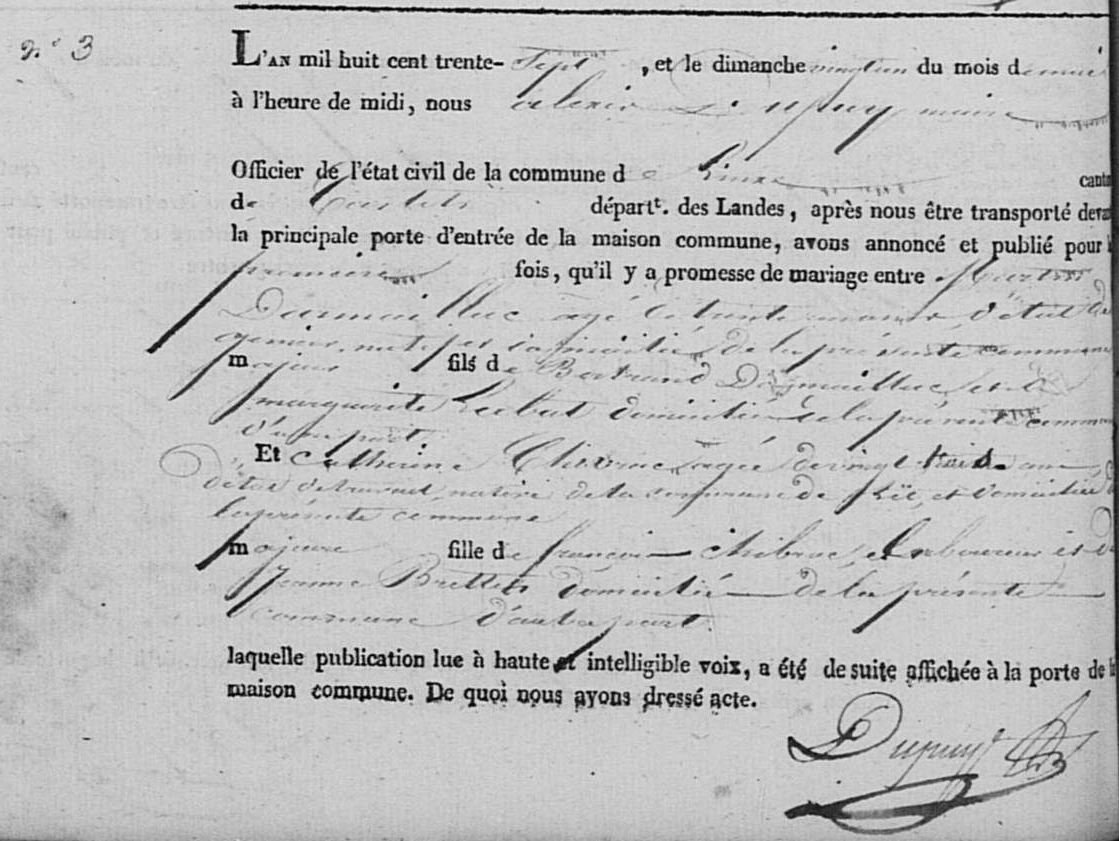 n° 3
L'AN mil huit cent trente- Sept , et le dimanche vingtun du mois d
à l'heure de midi, nous alexis Dupuy maire
Officier de l'état civil de la commune de Linxe cant
de Castets départt. des Landes, après nous être transporté deva
la principale porte d'entrée de la maison commune, avons annoncé et publié pour l
premiere fois, qu'il y a promesse de mariage entre
Darmailhac agé de trente ans, d'état de
natif et domicilié de la présente commune
majeur fils de Bertrand Darmailhac et d
marguerite domiciliés de la présente commune
d'une part.
Et Catherine agée de vingt trois ans,
d'état native de la commune de et domiciliée
la présente commune
majeure fille de françois Laboureur et d
Jeanne domiciliés de la présente
commune d'autre part.
laquelle publication lue à haute et intelligible voix, a été de suite affichée à la porte de l
maison commune. De quoi nous avons dressé acte.
Dupuy